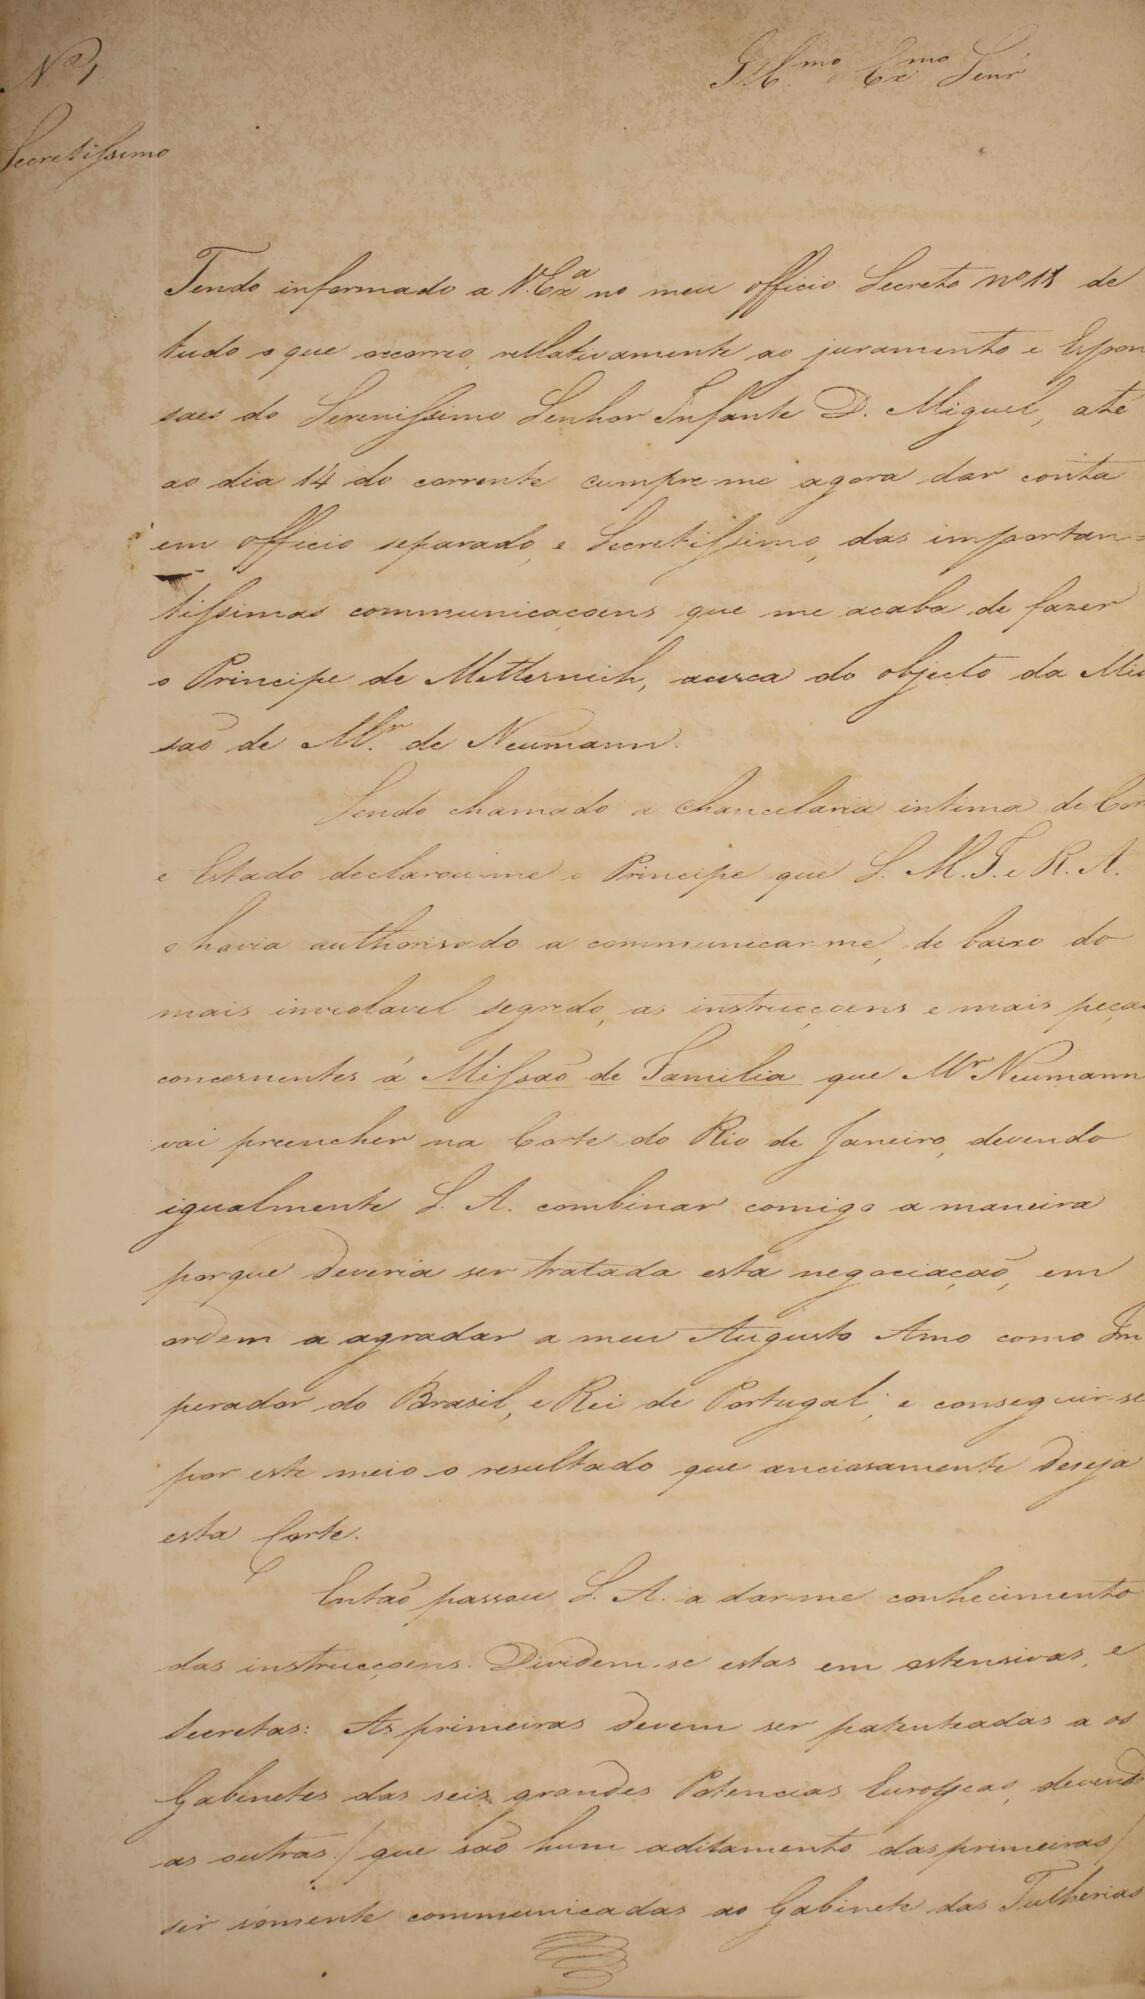 Nº 1
Illmo. e Exmo Senr
Secretissimo
Tendo informado a V. Exª no meu officio Secreto nº 18 de
tudo o que occorreo, rellativamente ao juramento e Espon
saes do Serenissimo Senhor Infante D. Miguel, até
ao dia 14 do corrente cumpre-me agora dar conta
em officio separado, e Secretissimo, das importan=
tissimas communicaçoens que me acaba de fazer
o Principe de Metternich, acerca do objecto da Mis
saõ de Mr. de Neumann.
Sendo chamado a Chancelaria intima de Cor
e Estado declarou-me o Principe que S. M. I. e R. A.
o havia authorisado a communicar-me, de baixo do
mais inviolavel segredo, as instrucçoens e mais peças
concernentes á Missaõ de Familia que Mr Neumann
vai preencher na Corte do Rio de Janeiro, devendo
igualmente S. A. combinar comigo a maneira
porque deveria ser tratada esta negociaçaõ, em
ordem a agradar a meu Augusto Amo como Im
perador do Brasil, e Rei de Portugal; e conseguir-se
por este meio o resultado que anciosamente deseja
esta Corte.
Entaõ passou S. A. a dar-me conhecimento
das instrucçoens. Dividem-se estas em ostensivas, e
Secretas: As primeiras devem ser patenteadas a os
Gabinetes das seis grandes Potencias Europeas, devendo
as outras / que saõ hum aditamento das primeiras /
ser sómente communicadas ao Gabinete das Tulherias